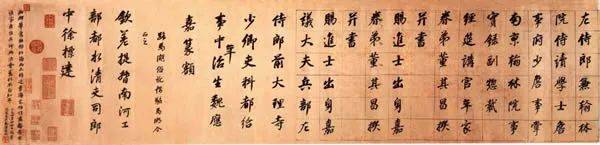 左侍郎兼翰林
院侍讀學士詹
事府少詹事掌
南京翰林院事
實錄副總裁
經筵講官年家
眷弟董其昌撰
并書
賜進士出身嘉
眷弟董其昌撰
并書
賜進士出身嘉
議大夫兵部左
侍郎前大理寺
少卿吏科都給
年
事中治生魏應
嘉篆額
欽差提督南河工
部都水清吏司郎
中徐標建